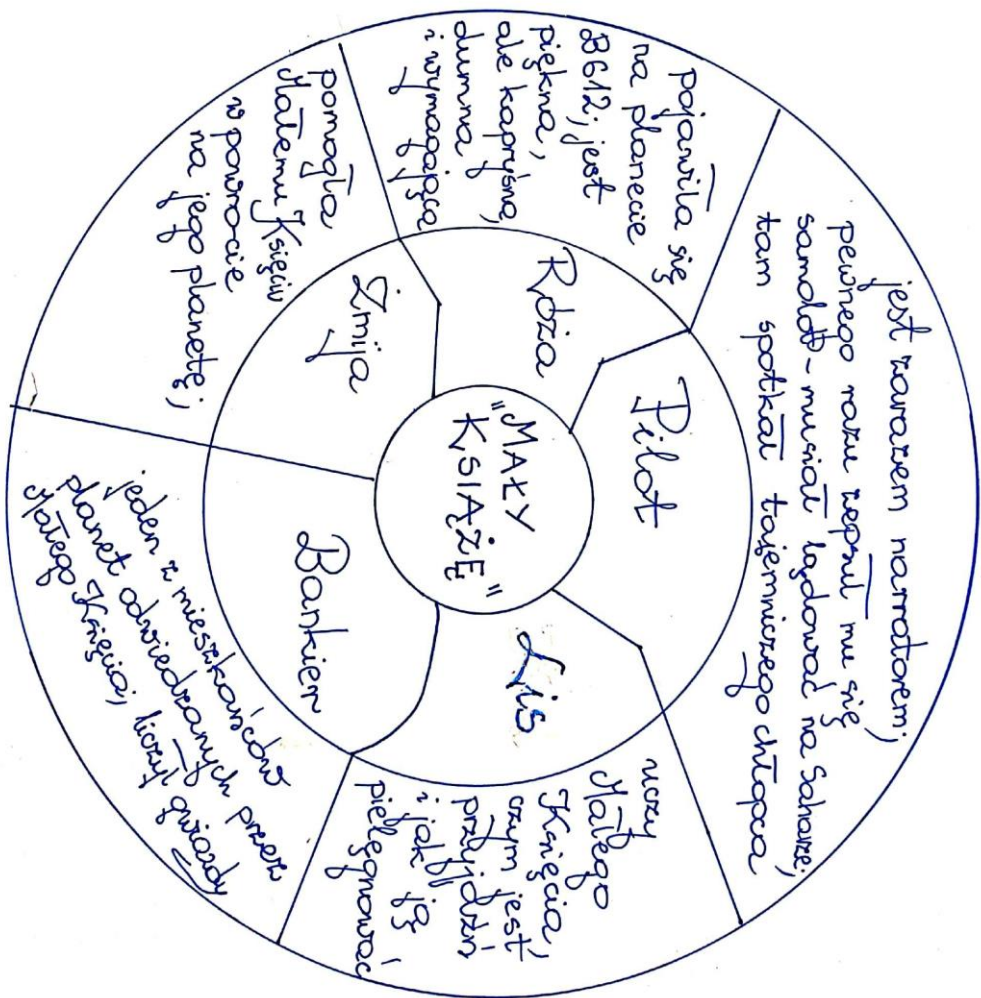 "MAŁY
KSIĄŻĘ"
Pilot
jest zarazem narratorem;
pewnego razu zepsuł mu się
samolot - musiał lądować na Saharze;
tam spotkał tajemniczego chłopca
Lis
uczy
Małego
Księcia,
czym jest
przyjaźń
i jak ją
pielęgnować
Bankier
jeden z mieszkańców
planet odwiedzanych przez
Małego Księcia; liczył gwiazdy
Żmija
pomogła
Małemu Księciu
w powrocie
na jego planetę;
Róża
pojawiła się
na planecie
B612; jest
piękna,
ale kapryśna,
dumna
i wymagająca